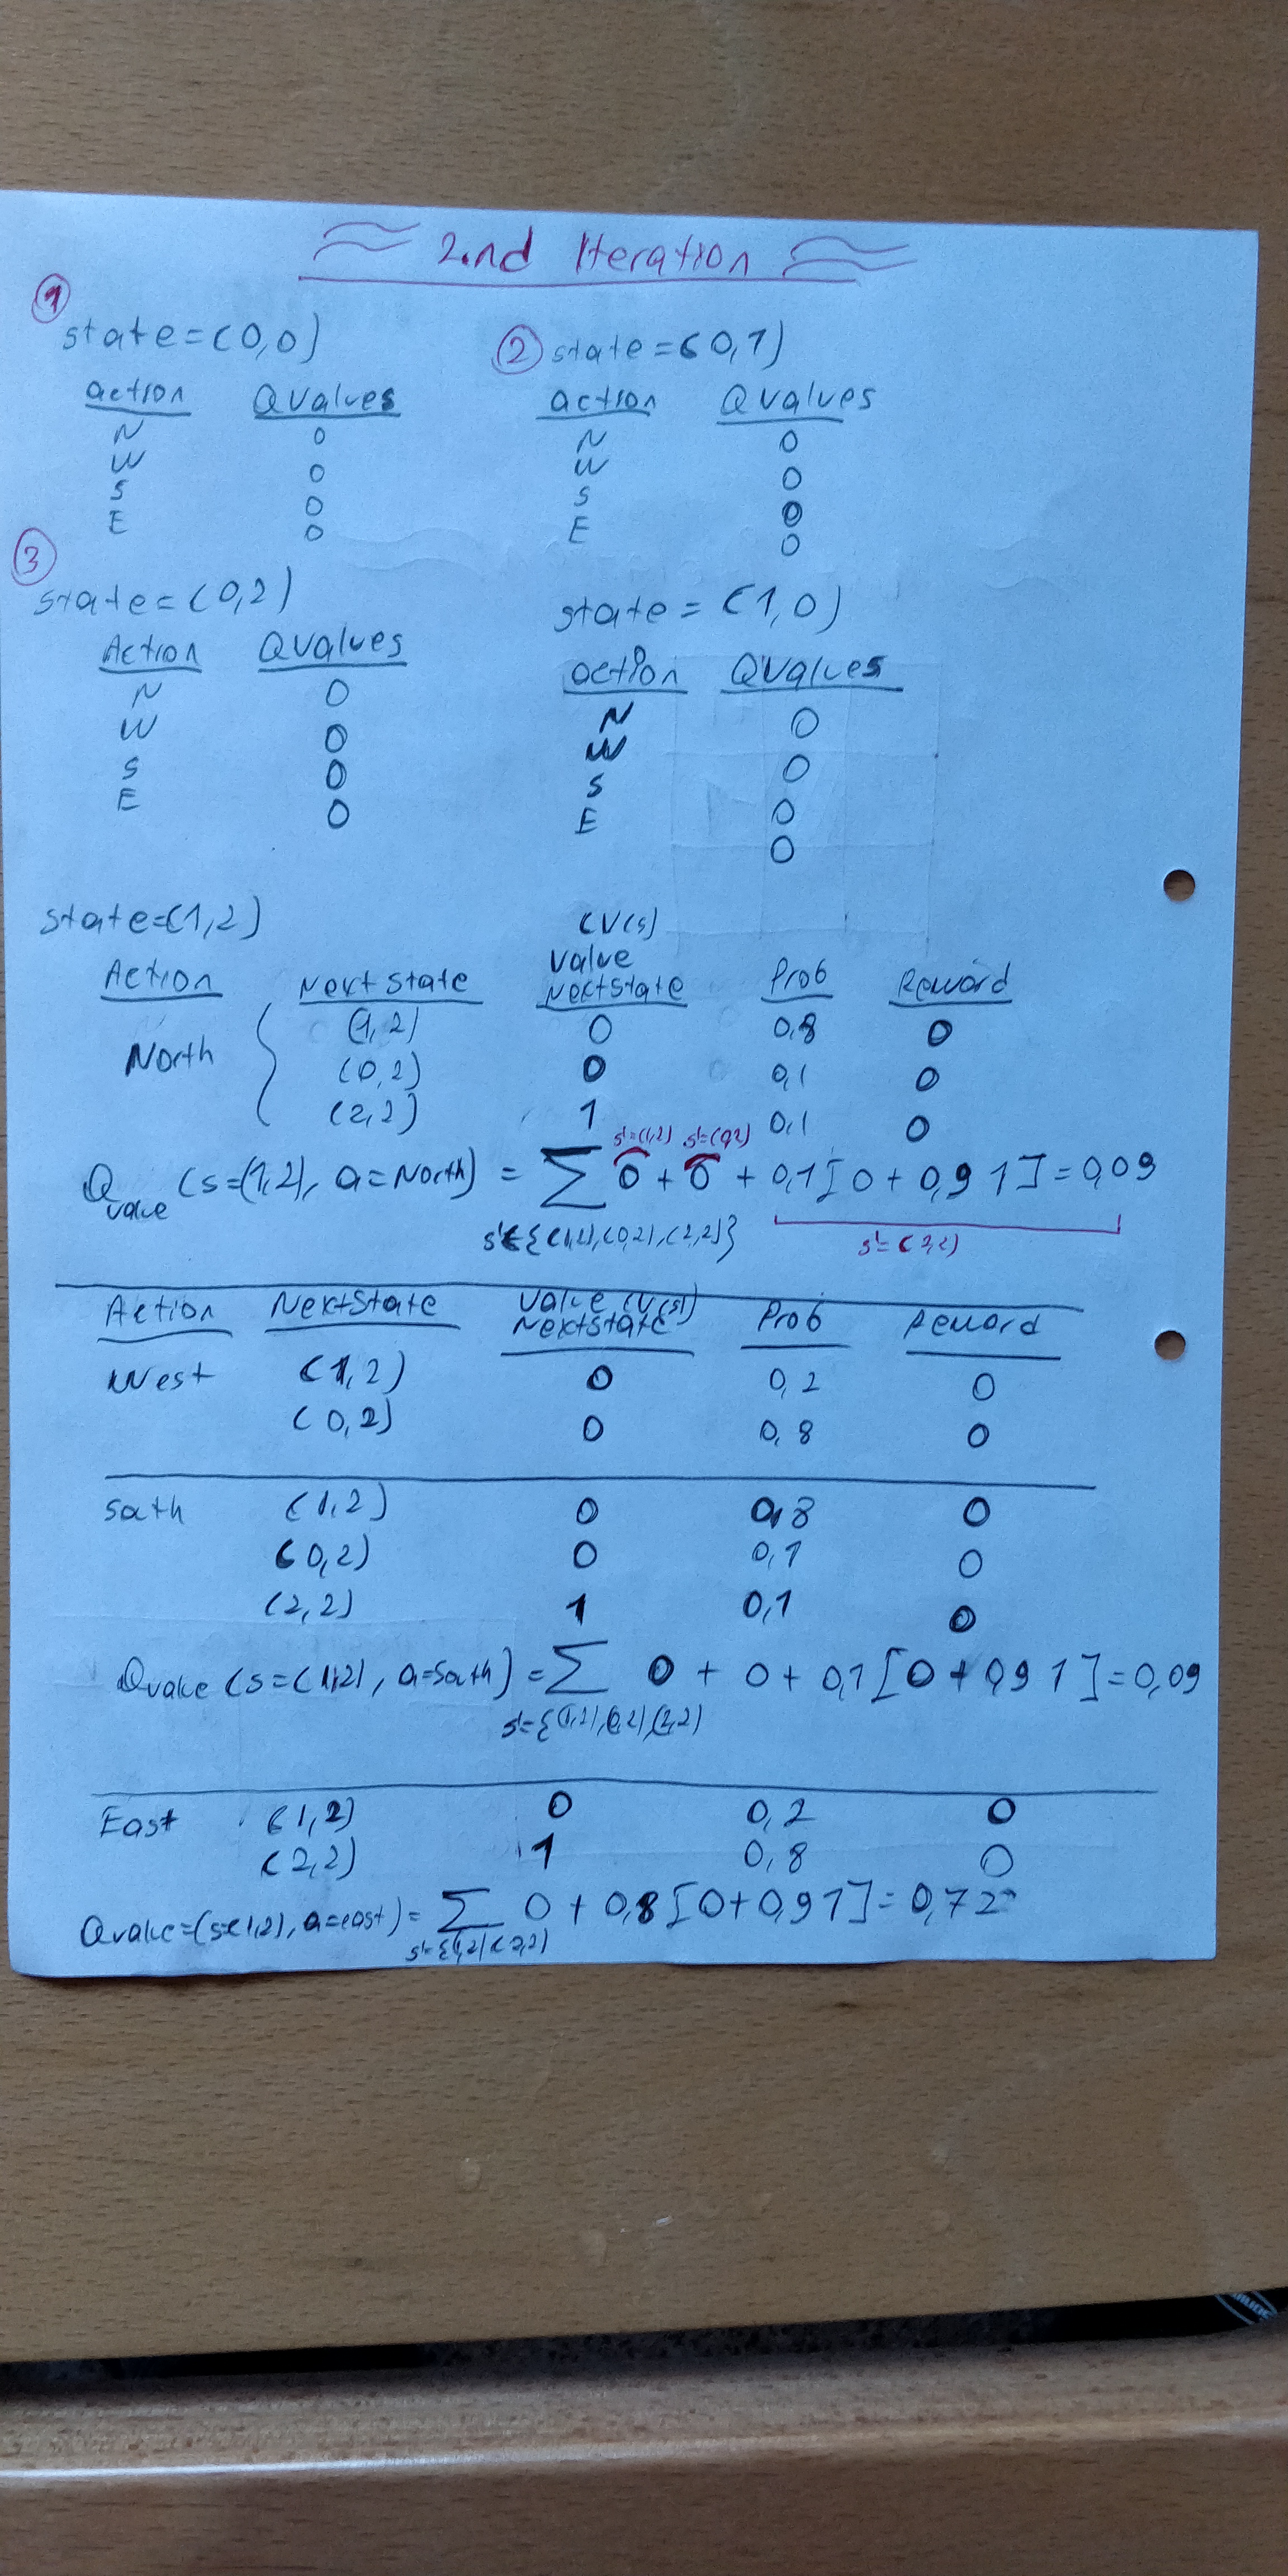 2.nd Iteration
1
state=(0,0)
action Qvalues
N 0
W 0
S 0
E 0
2 state=(0,1)
action Qvalues
N 0
W 0
S 0
E 0
3
state=(0,2)
Action Qvalues
N 0
W 0
S 0
E 0
state=(1,0)
action Qvalues
N 0
W 0
S 0
E 0
state=(1,2)
(V(s)
Action NextState Value NextState Prob Reward
North (1,2) 0 0,8 0
(0,2) 0 0,1 0
(2,2) 1 0,1 0
s'=(1,2) s'=(0,2)
Qvalue (s=(1,2), a=North) = ∑ 0 + 0 + 0,1[0 + 0,9 1] = 0,09
s'∈{(1,2),(0,2),(2,2)} s'=(2,2)
Action NextState Value (V(s) NextState Prob Reward
West (1,2) 0 0,2 0
(0,2) 0 0,8 0
South (1,2) 0 0,8 0
(0,2) 0 0,1 0
(2,2) 1 0,1 0
Qvalue (s=(1,2), a=South) = ∑ 0 + 0 + 0,1[0 + 0,9 1] = 0,09
s'={(1,2),(0,2),(2,2)
East (1,2) 0 0,2 0
(2,2) 1 0,8 0
Qvalue=(s=(1,2), a=east) = ∑ 0 + 0,8[0+0,9 1] = 0,72
s'={(1,2)(2,2)